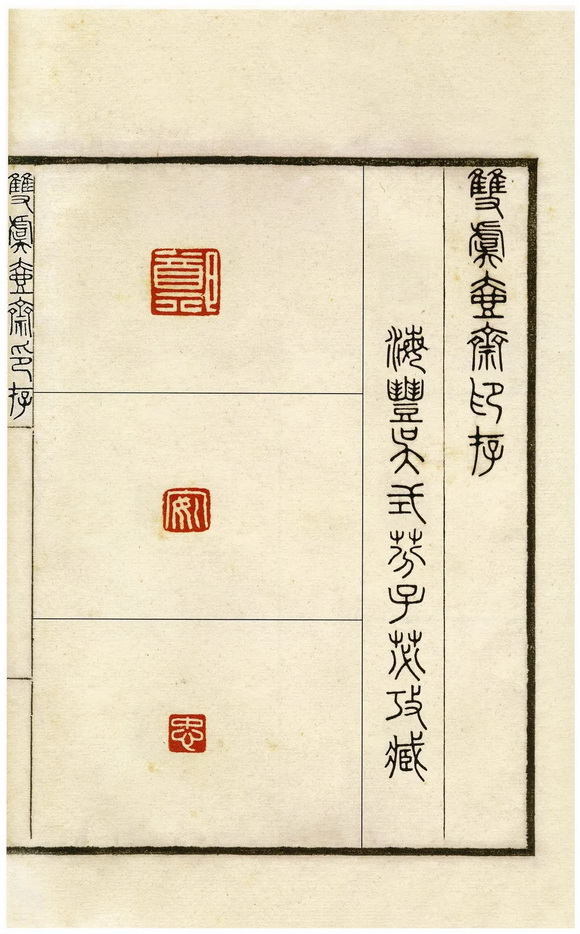 雙虞壺齋印存
海豐吳式芬子苾攷藏
安
忠
雙虞壺齋印存